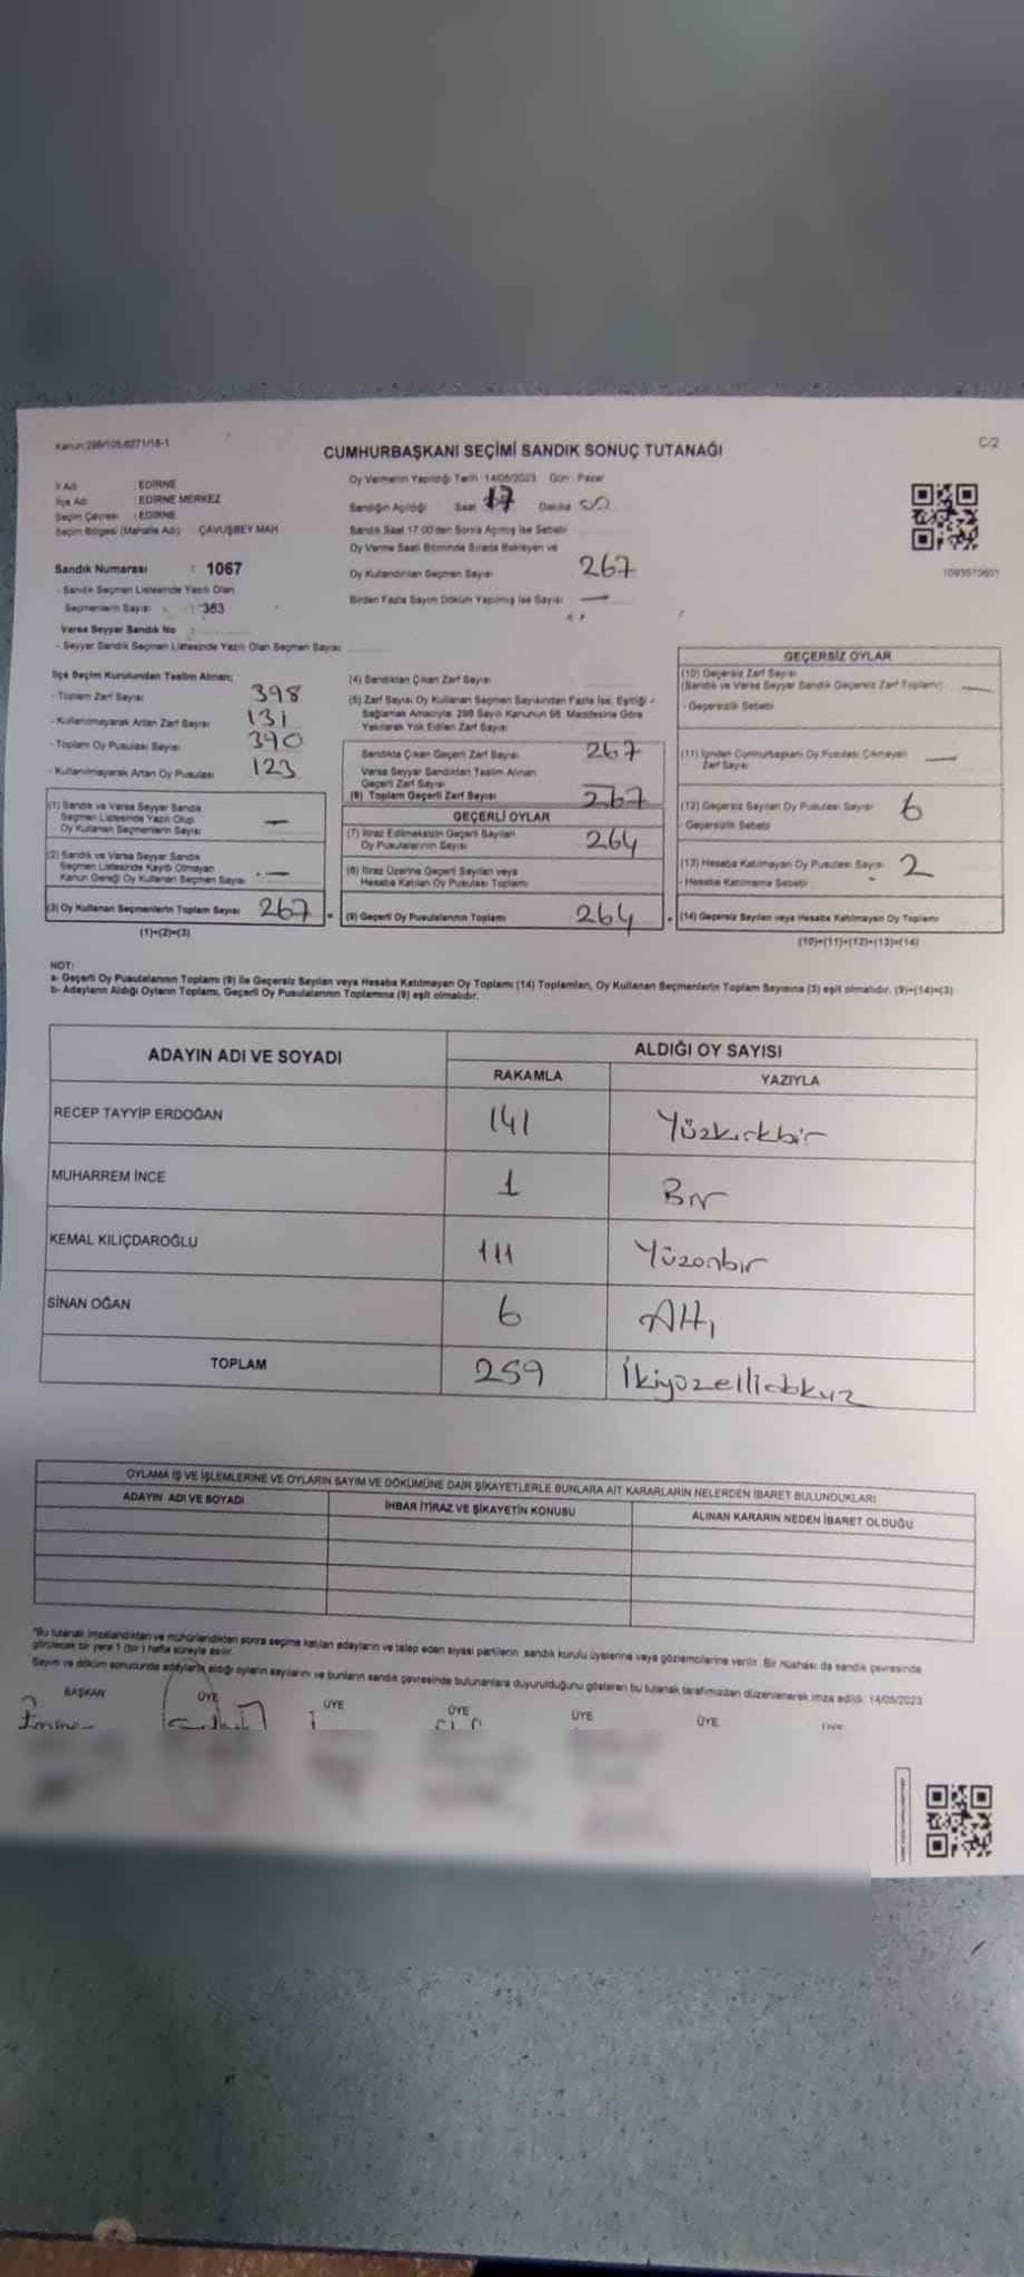 Kanun:298/105-6271/18-1
C/2
CUMHURBAŞKANI SEÇİMİ SANDIK SONUÇ TUTANAĞI
İl Adı : EDİRNE
İlçe Adı : EDİRNE MERKEZ
Seçim Çevresi : EDİRNE
Seçim Bölgesi (Mahalle Adı) ÇAVUŞBEY MAH
Sandık Numarası : 1067
- Sandık Seçmen Listesinde Yazılı Olan
Seçmenlerin Sayısı : 383
Varsa Seyyar Sandık No :
- Seyyar Sandık Seçmen Listesinde Yazılı Olan Seçmen Sayısı
Oy Vermenin Yapıldığı Tarih : 14/05/2023 Gün : Pazar
Sandığın Açıldığı Saat 17 Dakika 00
Sandık Saat 17:00'den Sonra Açılmış İse Sebebi
Oy Verme Saati Bitiminde Sırada Bekleyen ve
Oy Kullandırılan Seçmen Sayısı 267
Birden Fazla Sayım Döküm Yapılmış İse Sayısı —
İlçe Seçim Kurulundan Teslim Alınan;
- Toplam Zarf Sayısı 398
- Kullanılmayarak Artan Zarf Sayısı 131
- Toplam Oy Pusulası Sayısı 390
- Kullanılmayarak Artan Oy Pusulası 123
(1) Sandık ve Varsa Seyyar Sandık
Seçmen Listesinde Yazılı Olup
Oy Kullanan Seçmenlerin Sayısı —
(2) Sandık ve Varsa Seyyar Sandık
Seçmen Listesinde Kaydı Olmayan
Kanun Gereği Oy Kullanan Seçmen Sayısı —
(3) Oy Kullanan Seçmenlerin Toplam Sayısı 267
(1)+(2)=(3)
(4) Sandıktan Çıkan Zarf Sayısı
(5) Zarf Sayısı Oy Kullanan Seçmen Sayısından Fazla İse, Eşitliği
Sağlamak Amacıyla; 298 Sayılı Kanunun 98. Maddesine Göre
Yakılarak Yok Edilen Zarf Sayısı
Sandıkta Çıkan Geçerli Zarf Sayısı 267
Varsa Seyyar Sandıktan Teslim Alınan
Geçerli Zarf Sayısı
(6) Toplam Geçerli Zarf Sayısı 267
GEÇERLİ OYLAR
(7) İtiraz Edilmeksizin Geçerli Sayılan
Oy Pusulalarının Sayısı 264
(8) İtiraz Üzerine Geçerli Sayılan veya
Hesaba Katılan Oy Pusulası Toplamı
(9) Geçerli Oy Pusulalarının Toplamı 264
GEÇERSİZ OYLAR
(10) Geçersiz Zarf Sayısı
(Sandık ve Varsa Seyyar Sandık Geçersiz Zarf Toplamı) —
- Geçersizlik Sebebi
(11) İçinden Cumhurbaşkanı Oy Pusulası Çıkmayan
Zarf Sayısı —
(12) Geçersiz Sayılan Oy Pusulası Sayısı 6
- Geçersizlik Sebebi
(13) Hesaba Katılmayan Oy Pusulası Sayısı 2
- Hesaba Katılmama Sebebi
(14) Geçersiz Sayılan veya Hesaba Katılmayan Oy Toplamı
(10)+(11)+(12)+(13)=(14)
NOT:
a- Geçerli Oy Pusulalarının Toplamı (9) ile Geçersiz Sayılan veya Hesaba Katılmayan Oy Toplamı (14) Toplamları, Oy Kullanan Seçmenlerin Toplam Sayısına (3) eşit olmalıdır. (9)+(14)=(3)
b- Adayların Aldığı Oyların Toplamı, Geçerli Oy Pusulalarının Toplamına (9) eşit olmalıdır.
ADAYIN ADI VE SOYADI ALDIĞI OY SAYISI
RAKAMLA YAZIYLA
RECEP TAYYİP ERDOĞAN 141 Yüzkırkbir
MUHARREM İNCE 1 Bir
KEMAL KILIÇDAROĞLU 111 Yüzonbir
SİNAN OĞAN 6 Altı
TOPLAM 259 İkiyüzellidokuz
OYLAMA İŞ VE İŞLEMLERİNE VE OYLARIN SAYIM VE DÖKÜMÜNE DAİR ŞİKAYETLERLE BUNLARA AİT KARARLARIN NELERDEN İBARET BULUNDUKLARI
ADAYIN ADI VE SOYADI İHBAR İTİRAZ VE ŞİKAYETİN KONUSU ALINAN KARARIN NEDEN İBARET OLDUĞU
"Bu tutanak imzalandıktan ve mühürlendikten sonra seçime katılan adayların ve talep eden siyasi partilerin sandık kurulu üyelerine veya gözlemcilerine verilir. Bir nüshası da sandık çevresinde
görülecek bir yere 1 (bir) hafta süreyle asılır.
Sayım ve döküm sonucunda adayların aldığı oyların sayılarını ve bunların sandık çevresinde bulunanlara duyurulduğunu gösteren bu tutanak tarafımızdan düzenlenerek imza edildi. 14/05/2023
BAŞKAN ÜYE ÜYE ÜYE ÜYE ÜYE ÜYE
Emine